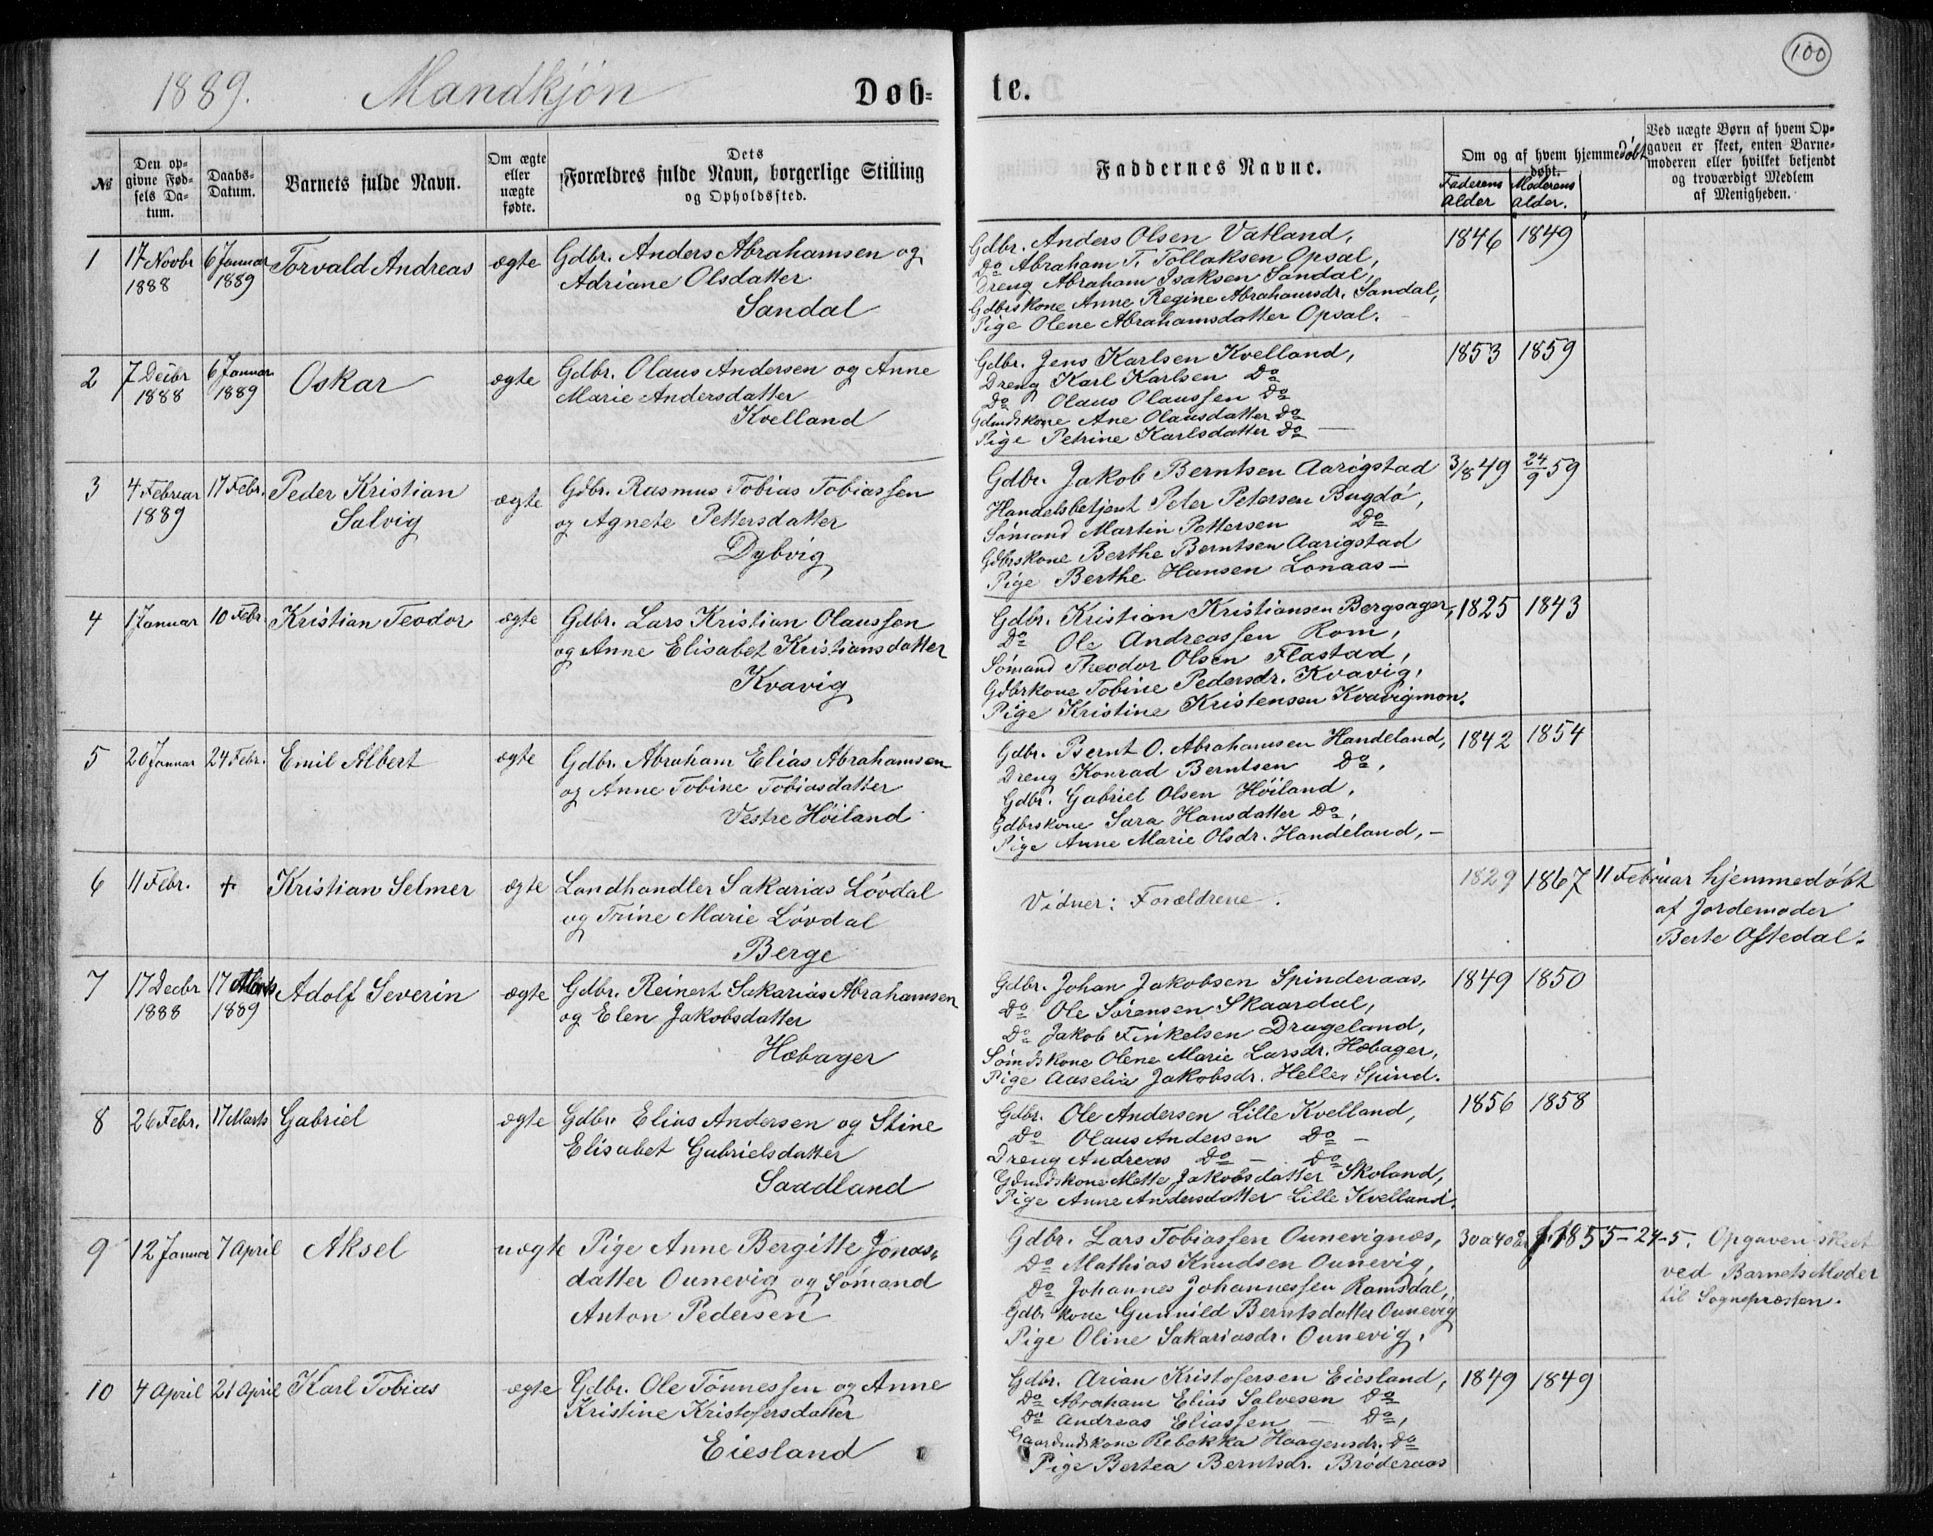 100
1889. Mandkjön Døb- te.
№ Den opgivne Fødsels Datum. Daabs-Datum. Barnets fulde Navn. Om ægte eller uægte fødte. Dets Forældres fulde Navn, borgerlige Stilling og Opholdssted. Faddernes Navne. Om og af hvem hjemmedøbt døbt. Faderens alder Moderens alder. Ved uægte Børn af hvem Opgaven er skeet, enten Barnemoderen eller hvilket bekjendt og troværdigt Medlem af Menigheden.
1 17 Novbr 1888 6 Januar 1889 Torvald Andreas ægte Gdbr. Anders Abrahamsen og
Adriane Olsdatter
Sandal
Gdbr. Anders Olsen Vatland, 1846 1849
Do Abraham T. Tollaksen Opsal,
Dreng Abraham Isaksen Sandal,
Gdbrskone Anne Regine Abrahamsdr. Sandal,
Pige Olene Abrahamsdatter Opsal.
2 7 Decbr 1888 6 Januar 1889 Oskar ægte Gdbr. Olaus Andersen og Anne
Marie Andersdatter
Kvelland
Gdbr. Jens Karlsen Kvelland, 1853 1859
Dreng Karl Karlsen Do
Do Olaus Olaussen Do
Gdmdskone Ane Olausdatter Do
Pige Petrine Karlsdatter Do —
3 4 Februar 1889 17 Febr. Peder Kristian Salvig ægte Gdbr. Rasmus Tobias Tobiassen
og Agnete Pettersdatter
Dybvig
Gdbr. Jakob Berntsen Aarigstad 3/8 49 24/9 59
Handelsbetjent Peter Petersen Bugdö,
Sömand Martin Pettersen Do
Gdbrskone Berthe Berntsen Aarigstad
Pige Berthe Hansen Lonaas —
4 1 Januar 10 Febr. Kristian Teodor ægte Gdbr. Lars Kristian Olaussen
og Anne Elisabet Kristiansdatter
Kvavig
Gdbr. Kristian Kristiansen Bergsager, 1825 1843
Do Ole Andreassen Rom,
Sömand Theodor Olsen Flastad,
Gdbrkone Tobine Pedersdr. Kvavig,
Pige Kristine Kristensen Kvavigmon.
5 20 Januar 24 Febr. Emil Albert ægte Gdbr. Abraham Elias Abrahamsen
og Anne Tobine Tobiasdatter
Vestre Höiland
Gdbr. Bernt O. Abrahamsen Handeland, 1842 1854
Dreng Konrad Berntsen Do,
Gdbr. Gabriel Olsen Höiland,
Gdbrskone Sara Hansdatter Do,
Pige Anne Marie Olsdr. Handeland, —
6 11 Febr. + Kristian Selmer ægte Landhandler Sakarias Lövdal
og Trine Marie Lövdal
Berge
Vidner: Forældrene. 1829 1867 11 Februar hjemmedöbt
af Jordemoder
Berte Oftedal.
7 17 Decbr 1888 17 Marts 1889 Adolf Severin ægte Gdbr. Reinert Sakarias Abrahamsen
og Elen Jakobsdatter
Hæbager
Gdbr. Johan Jakobsen Spinderaas, 1849 1850
Do Ole Sörensen Skaardal,
Do Jakob Finkelsen Drageland,
Sömdskone Olene Marie Larsdr. Hæbager,
Pige Aaselia Jakobsdr. Helle, Spind.
8 26 Febr. 17 Marts Gabriel ægte Gdbr. Elias Andersen og Stine
Elisabet Gabrielsdatter
Saadland
Gdbr. Ole Andersen Lille Kvelland, 1856 1858
Do Olaus Andersen Do —
Dreng Andreas Do — Do
Gdmdskone Mette Jakobsdatter Skoland,
Pige Anne Andersdatter Lille Kvelland.
9 12 Januar 7 April Aksel uægte Pige Anne Bergitte Jonas-
datter Ounevig og Sömand
Anton Pedersen
Gdbr. Lars Tobiassen Ounevignæs, 30 a 40 år f. 1855-24-5. Opgaven skeet
ved Barnets Moder
til Sognepræsten.
Do Mathias Knudsen Ounevig,
Do Johannes Johannessen Ramsdal,
Gdbr kone Gunnild Berntsdatter Ounevig
Pige Oline Sakariasdr. Ounevig.
10 4 April 21 April Karl Tobias ægte Gdbr. Ole Tönnessen og Anne
Kristine Kristofersdatter
Eiesland
Gdbr. Arian Kristofersen Eiesland, 1849 1849
Do Abraham Elias Salvesen Do
Do Andreas Eliassen — Do,
Gaardmdskone Rebekka Haagensdr. Do
Pige Bertea Berntsdr. Bröderaas